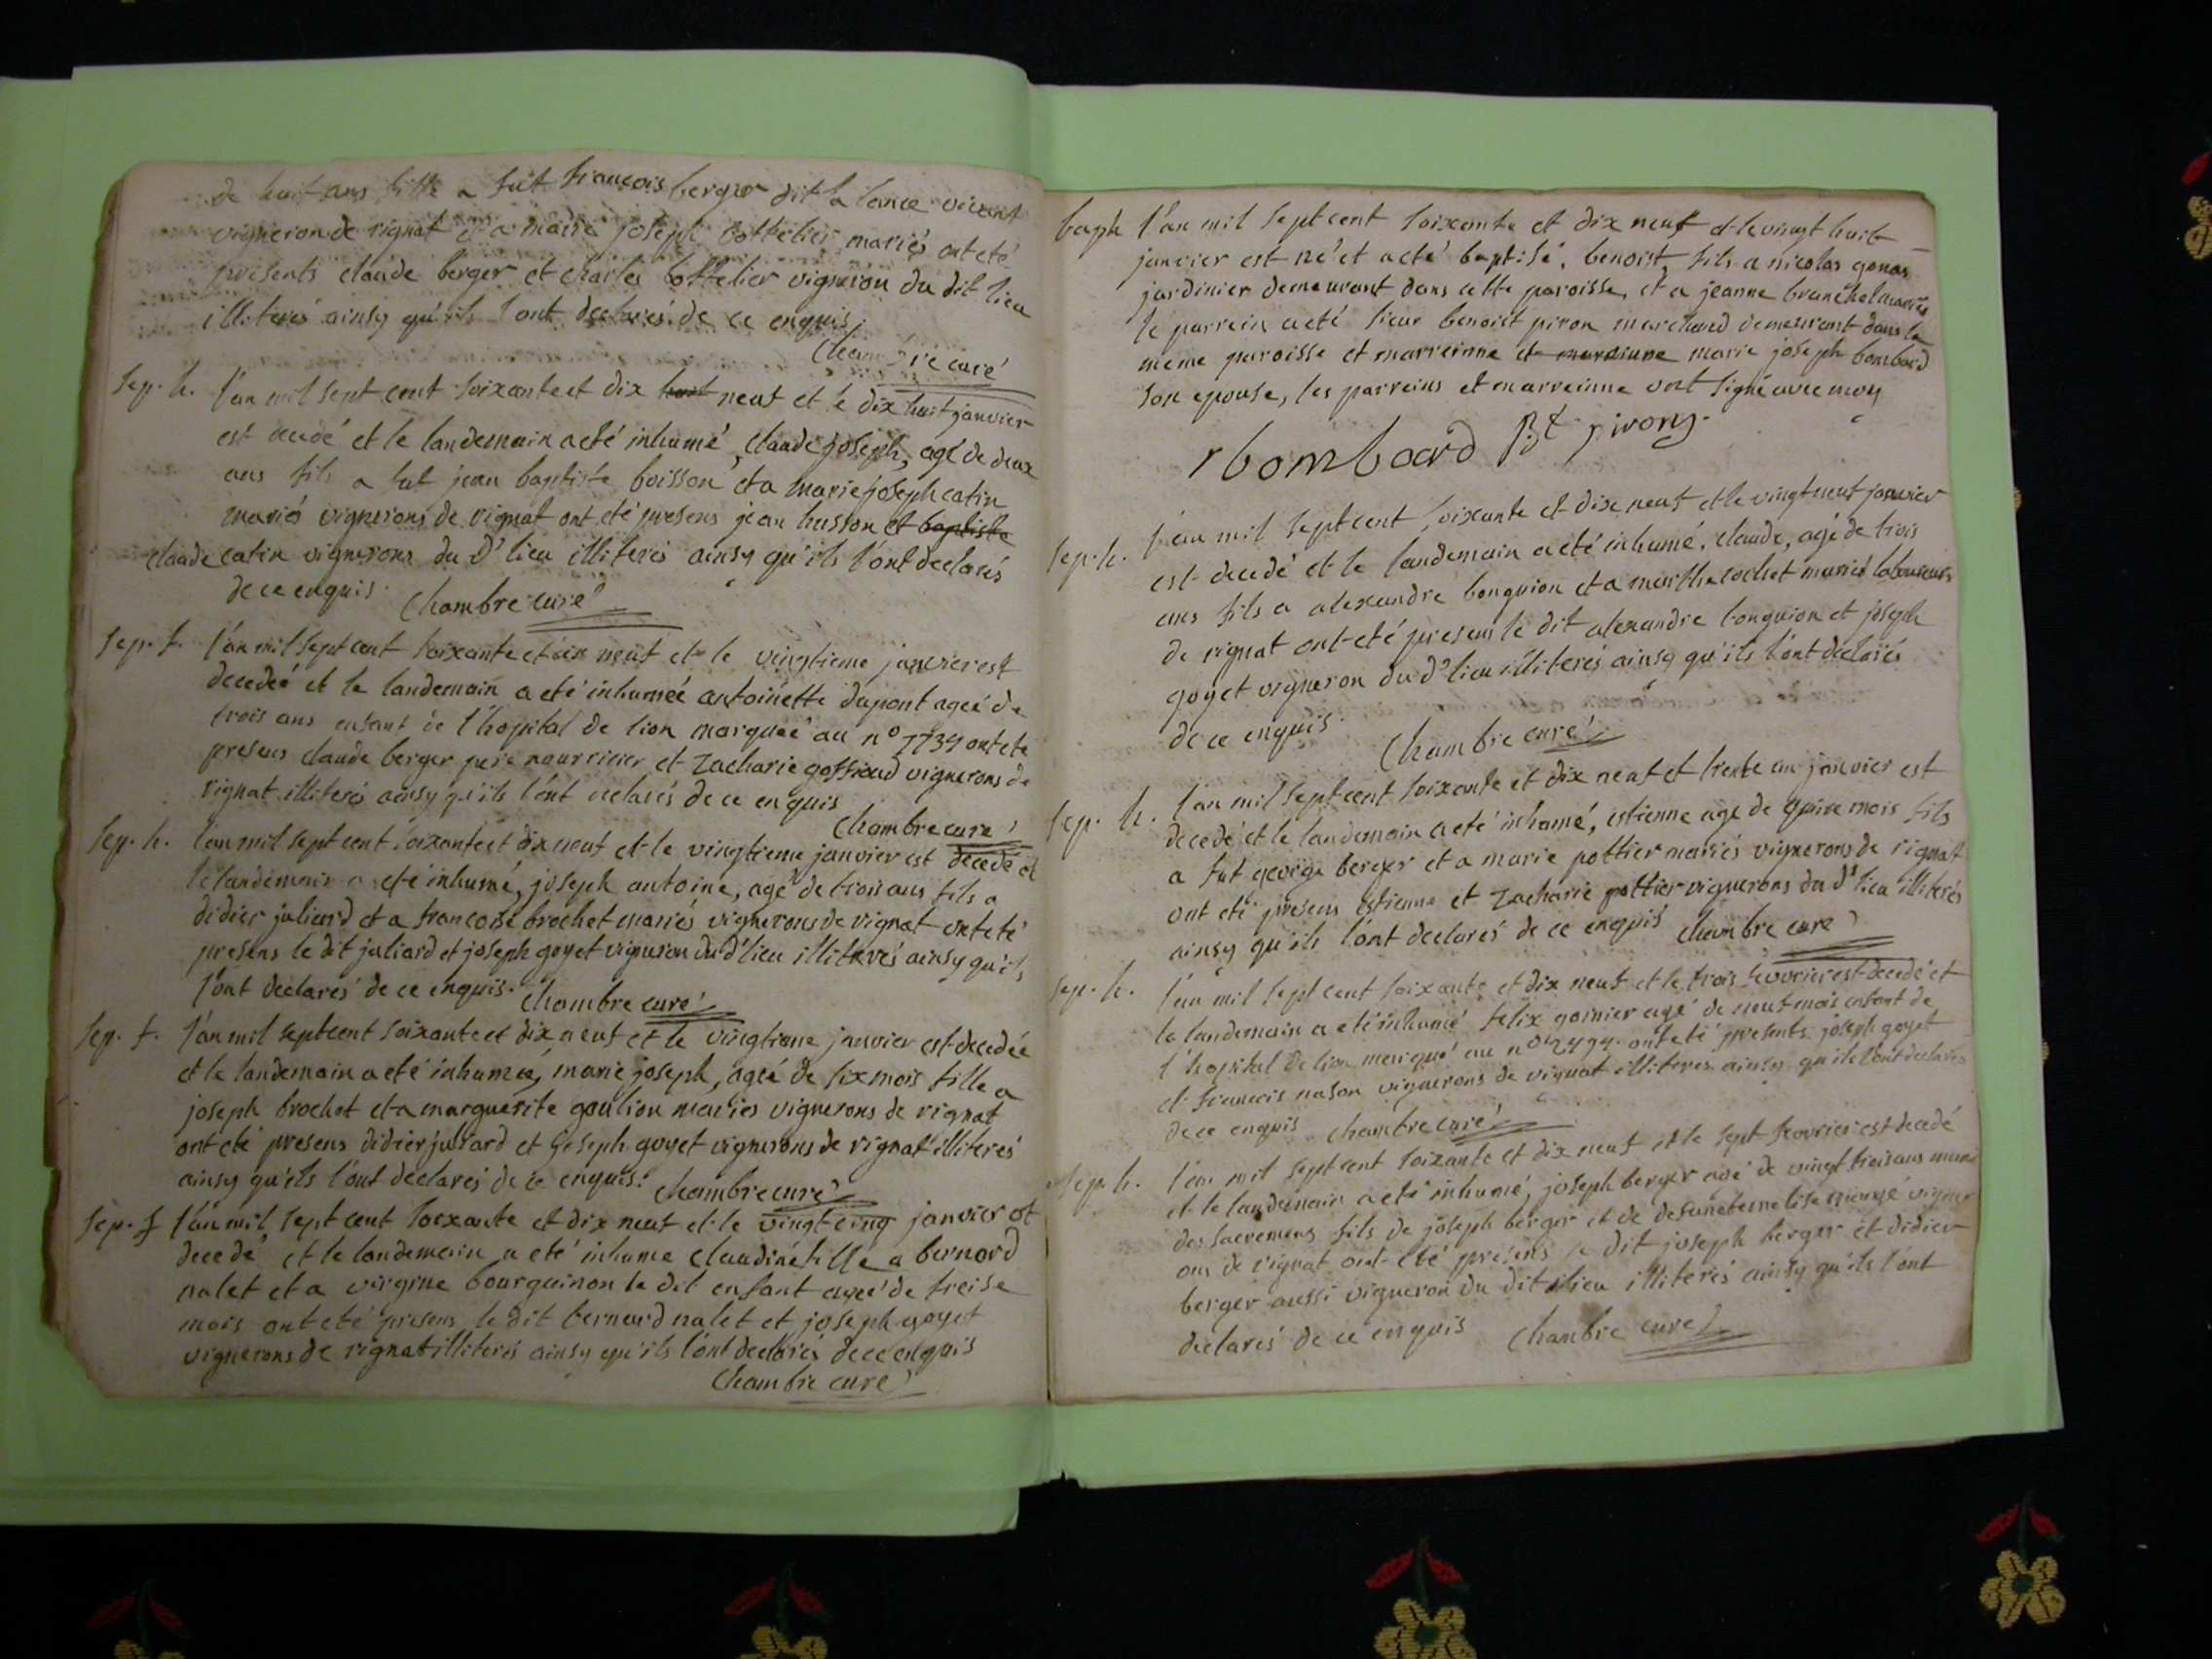 de huit ans fille a fut françois berger dit la lance vivant
vigneron de rignat et a marie joseph bottelier mariés ont eté
presents claude berger et charles bottelier vigneron du dit lieu
illiterés ainsy qu'ils l'ont declarés de ce enquis
Chambre curé
Sep. h. l'an mil sept cent soixante et dix huit neuf et le dix huit janvier
est decedé et le landemain a eté inhumé, claude joseph, agé de deux
ans fils a fut jean baptiste boisson et a marie joseph catin
mariés vignerons de rignat ont eté presens jean husson et baptiste
claude catin vignerons du dt lieu illiterés ainsy qu'ils l'ont declarés
de ce enquis. Chambre curé
Sep. f. l'an mil sept cent soixante et dix neuf et le vingtieme janvier est
decedeé et le landemain a eté inhumeé antoinette dupont ageé de
trois ans enfant de l'hopital de lion marqueé au no 7734 ont eté
presens claude berger pere nourricier et Zacharie goffioud vignerons de
rignat illiterés ainsy qu'ils l'ont declarés de ce enquis
Chambre curé
Sep. h. l'an mil sept cent soixante et dix neuf et le vingtieme janvier est decedé et
le landemain a eté inhumé, joseph antoine, agé de trois ans fils a
didier juliard et a françoise brochet mariés vignerons de rignat ont eté
presens le dit juliard et joseph goyet vigneron du dt lieu illiterés ainsy qu'ils
l'ont declarés de ce enquis. Chambre curé
Sep. f. l'an mil sept cent soixante et dix neuf et le vingtieme janvier est decedée
et le landemain a eté inhumeé, marie joseph, ageé de six mois fille a
joseph brochet et a marguerite goulion mariés vignerons de rignat
ont eté presens didier juliard et joseph goyet vignerons de rignat illiterés
ainsy qu'ils l'ont declarés de ce enquis. Chambre curé
Sep. f l'an mil sept cent soixante et dix neuf et le vingt cinq janvier est
decedé et le landemain a eté inhume Claudine fille a bernard
nalet et a virginie bourguinon le dit enfant ageé de treise
mois ont eté presens le dit bernard nalet et joseph goyet
vignerons de rignat illiterés ainsy qu'ils l'ont declarés de ce enquis
Chambre curé
bapt l'an mil sept cent soixante et dix neuf et le vingt huit
janvier est né et a eté baptisé, benoist, fils a nicolas gonas
jardinier demeurant dans cette paroisse, et a jeanne brunehel mariés
le parrein a eté sieur benoist piron marchand demeurant dans la
meme paroisse et marreinne et marreinne marie joseph bombard
son epouse, les parreins et marreinne ont signé avec moy
r bombard Bt pirony
Sep. h. l'an mil sept cent soixante et dix neuf et le vingt neuf janvier
est decedé et le landemain a eté inhumé, claude, agé de trois
ans fils a alexandre bonguion et a marthe rochet mariés laboureurs
de rignat ont eté presens le dit alexandre bonguion et joseph
goyet vigneron du dt lieu illiterés ainsy qu'ils l'ont declarés
de ce enquis. Chambre curé
Sep. h. l'an mil sept cent soixante et dix neuf et trente un janvier est
decedé et le landemain a eté inhumé, estienne age de quinse mois fils
a fut george berger et a marie pottier mariés vignerons de rignat
ont eté presens estienne et Zacharie pottier vignerons du dt lieu illiterés
ainsy qu'ils l'ont declarés de ce enquis Chambre curé
Sep. h. l'an mil sept cent soixante et dix neuf et le trois fevrier est decedé et
le landemain a eté inhumé felix garnier agé de neuf mois enfant de
l'hopital de lion marqué au no ont eté presents joseph goyet
et francois nason vignerons de rignat illiterés ainsy qu'ils l'ont declarés
de ce enquis Chambre curé
Sep. h. l'an mil sept cent soixante et dix neuf et le sept fevrier est decedé
et le landemain a eté inhumé, joseph berger agé de vingt trois ans muni
des sacremens fils de joseph berger et de defunte vigner
ons de rignat ont eté presens le dit joseph berger et didier
berger aussi vigneron du dit lieu illiterés ainsy qu'ils l'ont
declarés de ce enquis Chambre curé